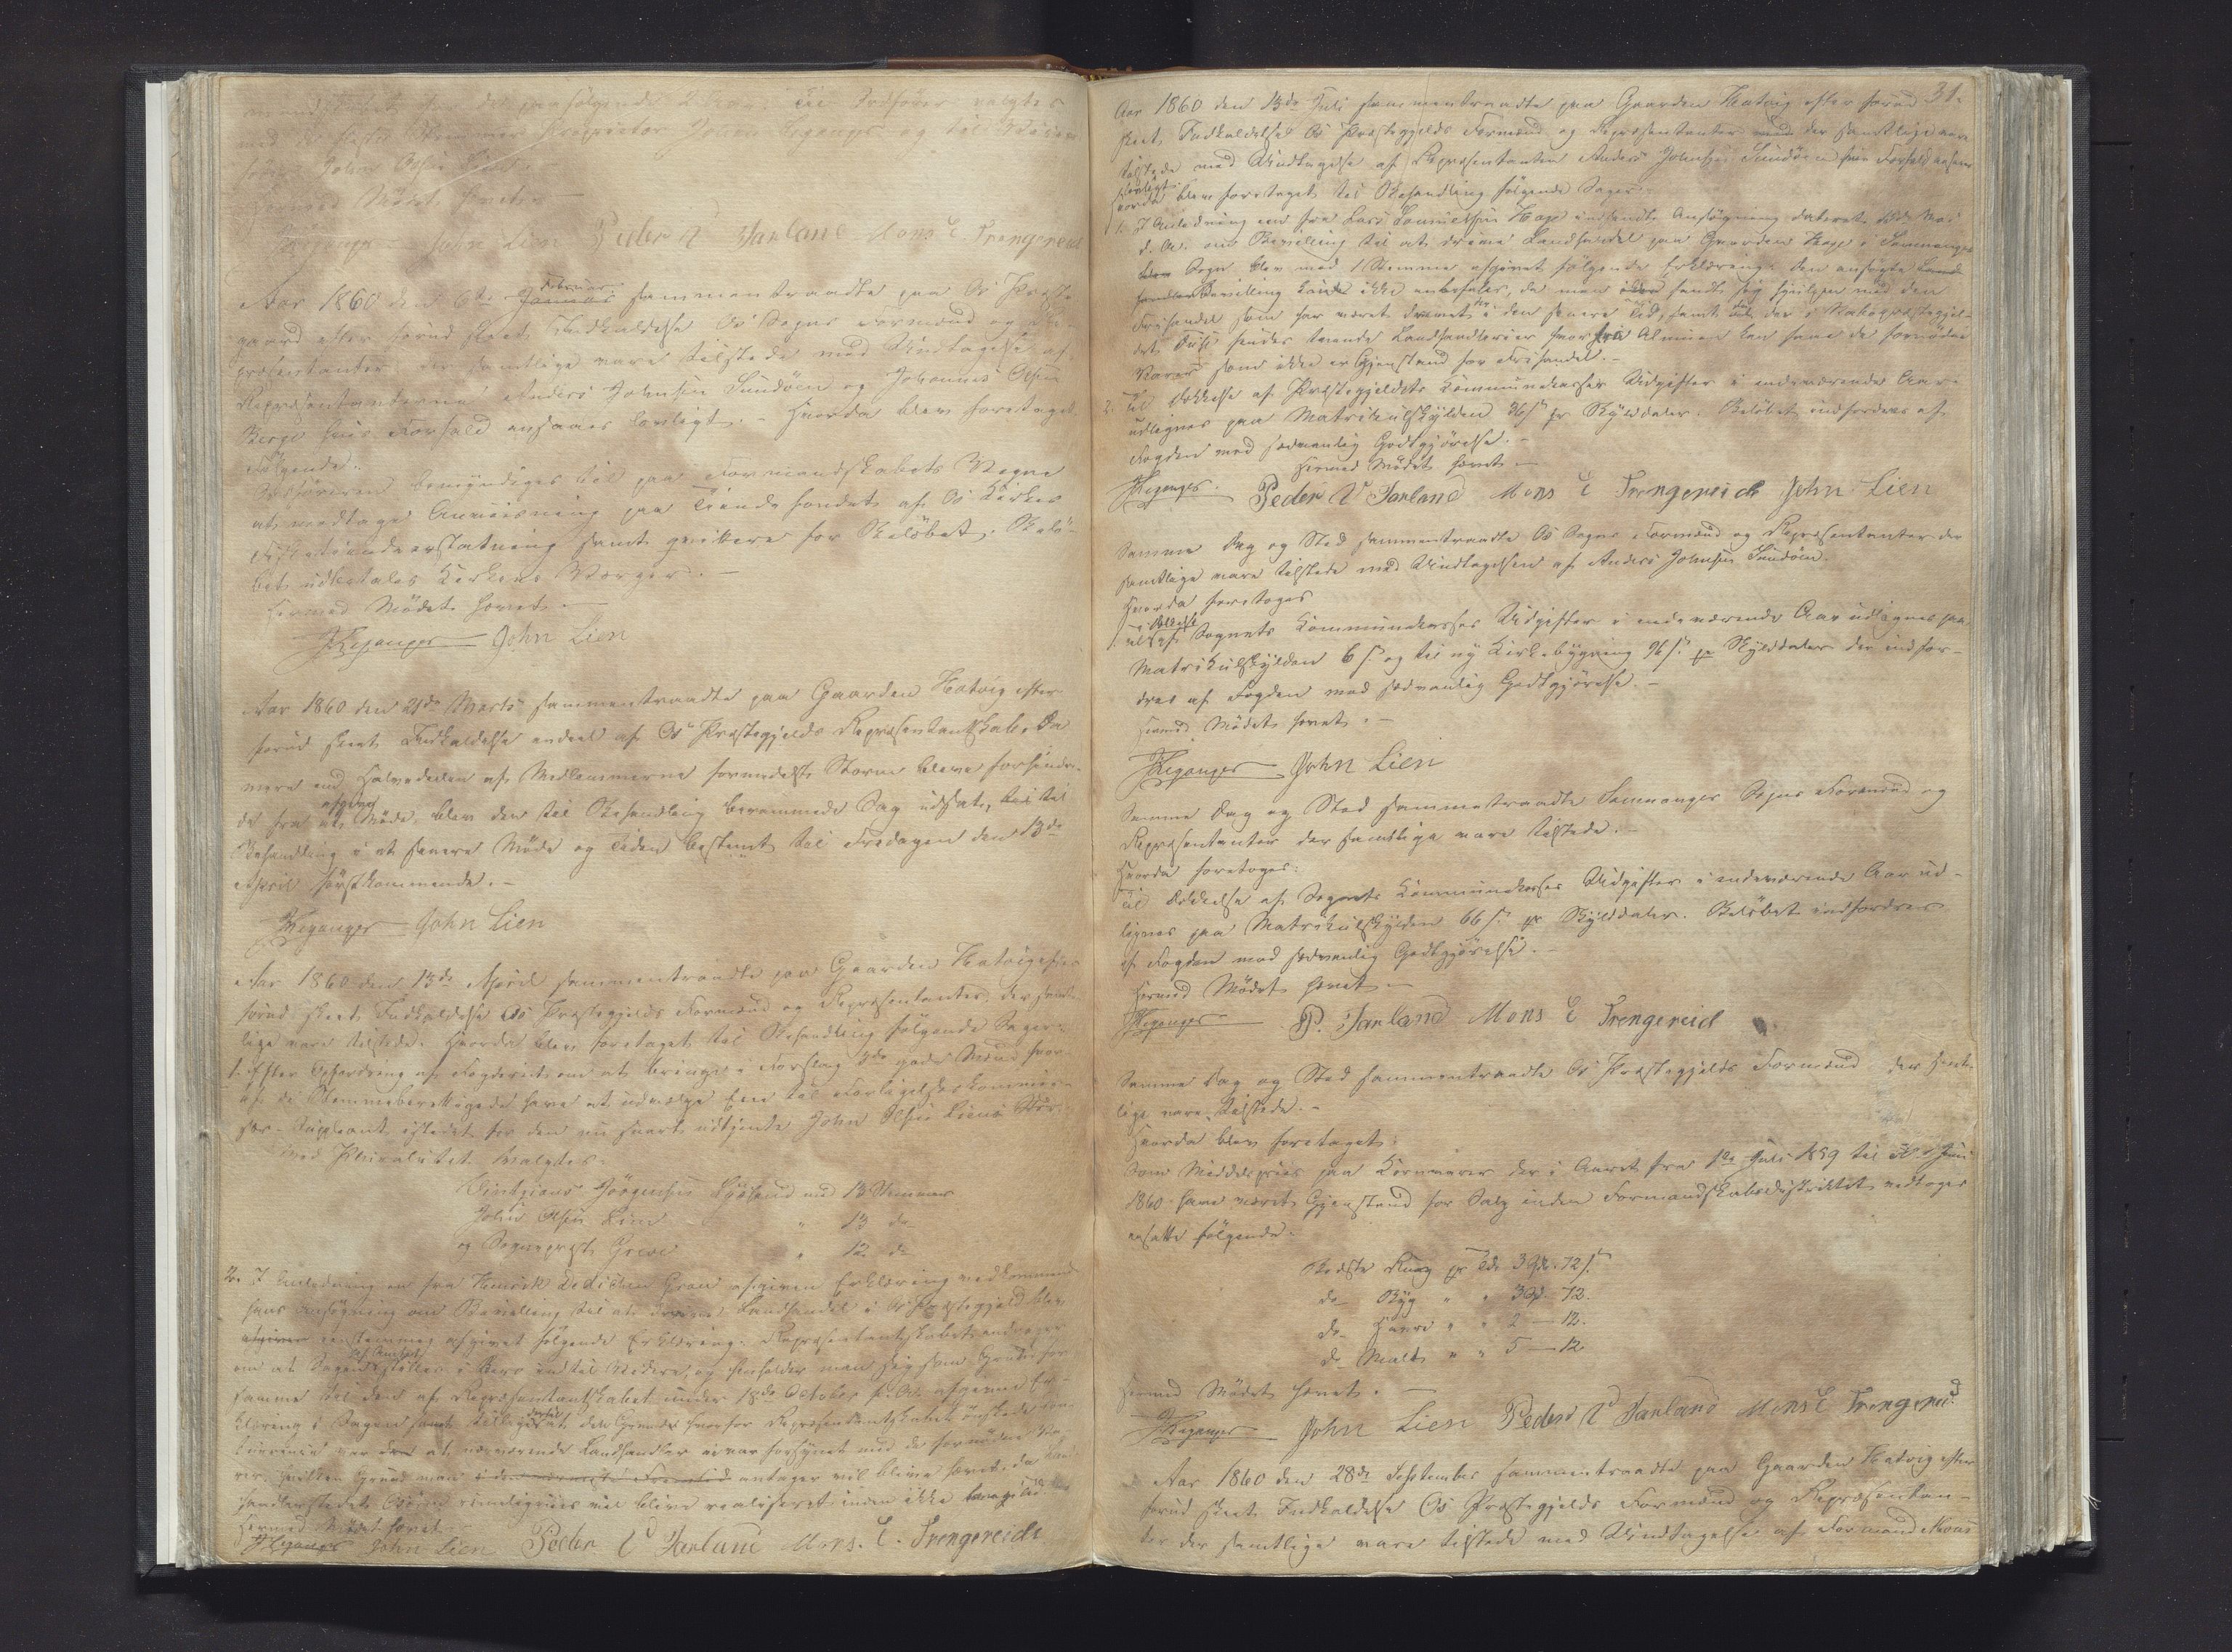 mandskabet for de paafølgende 2 Aar. Til Ordfører valgtes
med de fleste Stemmer Proprietær Johan Hejanger og til Viceord-
fører John Olsen Lien.
Hermed Mødet hævet.
Hejanger John Lien Peder V Tarland Mons E Trengereid
Aar 1860 den 6te Januar Februar sammentraadte paa Os Præste-
gaard efter forud skeet Indkaldelse Os Sogns Formænd og Re-
præsentanter der samtlige vare tilstede med Undtagelse af
Repræsentanterne Anders Johnsen Sundøen og Johannes Olsen
Berge hvis Forfald ansaaes lovligt. - Hvorda blev foretaget
Følgende.
Ordføreren bemyndiges til paa Formandskabets Vegne
at modtage Anviisning paa Tiendefondet af Os Kirkes
Tiendeerstatning samt qvittere for Beløbet. Belø-
bet udbetales Kirkens Værger. -
Hermed Mødet hævet. -
Hejanger John Lien
Aar 1860 den 21de Marts sammentraadte paa Gaarden Hatvig efter
forud skeet Indkaldelse endeel af Os Præstegjelds Repræsentantskab. Da
mere end Halvdelen af Medlemmerne formedelst Storm bleve forhindre-
de fra at Møde, blev den til Behandling berammede Sag udsat, til
Behandling i et senere Møde og Tiden bestemt til Fredagen den 13de
April førstkommende. -
Hejanger John Lien
Aar 1860 den 13de April sammentraadte paa Gaarden Hatvig efter
forud skeet Indkaldelse Os Præstegjelds Formænd og Repræsentanter, der samt-
lige vare tilstede. Hvorda blev foretaget til Behandling følgende Sager:
1. Efter Opfordring af Fogderiet om at bringe i Forslag 3de gode Mænd hvor-
af de Stemmeberettigede have at udvælge Een til Forligelseskommis-
sær-Suppleant istedet for den nu snart udtjente John Olsen Liens
Med Pluralitet valgtes:
Jørgensen Lysesund med 13 Stemmer
John Olsen Lien " 13 do
og Sognepræst Greve " 12 do
2. I Anledning en fra Henrik Gran afgiven Erklæring vedkommende
hans Ansøgning om Bevilling til at drive Landhandel i Os Præstegjeld blev
afgiven eenstemmig afgivet følgende Erklæring: Repræsentantskabet andrager
om at Sagen stilles i Bero indtil Videre, og henholder man sig som Grund for
samme til den af Repræsentantskabet under 18de October f. A. afgivne Er-
klæring i Sagen samt tillige at den Grund hvorfor Repræsentantskabet ønskede
var den at nærværende Landhandler ei var forsynet med de fornødne Va-
rer, hvilken Grund man i den nærmeste Fremtid antager vil blive hævet, da Land-
handlerstedet Osøren rimeligviis vil blive realiseret inden ikke
Hermed Mødet hævet.
Hejanger John Lien Peder V Tarland Mons. E. Trengereide
31.
Aar 1860 den 13de Juli sammentraadte paa Gaarden Hatvig efter forud
skeet Indkaldelse Os Præstegjelds Formænd og Repræsentanter med der samtlige vare
tilstede med Undtagelse af Repræsentanten Anders Johnsen Sundøen hvis Forfald ansaaes
lovligt
Hvorda blev foretaget til Behandling følgende Sager:
1. I Anledning en fra Lars Samuelsen Hage indsendt Ansøgning dateret Mai
d. A. om Bevilling til at drive Landhandel paa Gaarden Hage i Samnanger
Sogn blev med 1 Stemme afgivet følgende Erklæring: Den ansøgte Land-
handler Bevilling kunde ikke anbefales, da man fandt sig hjulpen med den
Frihandel som har været drevet i den senere Tid, samt da der i Præstegjel-
det Fuse findes tvende Landhandlerier hvorfra Almuen kan have de fornødne
Varer som ikke er Gjenstand for Frihandel. -
2. Til Dækkelse af Præstegjeldets Kommunekasses Udgifter i indeværende Aar
udlignes paa Matrikulskylden 96 s pr Skylddaler. Beløbet indfordres af
Fogden med sædvanlig Godtgjørelse. -
Hermed Mødet hævet. -
Hejanger. Peder V Tarland Mons E Trengereide John Lien
Samme Dag og Sted sammentraadte Os Sogns Formænd og Repræsentanter der
samtlige vare tilstede med Undtagelsen af Anders Johnsen Sundøen.
Hvorda foretoges
1. Til Dækkelse af Sognets Kommunekasses Udgifter i indeværende Aar udlignes paa
Matrikulskylden 6 s. og til ny Kirkebygning 96 s. pr Skylddaler der indfor-
dres af Fogden med sædvanlig Godtgjørelse. -
Hermed Mødet hævet. -
Hejanger John Lien
Samme Dag og Sted sammentraadte Samnanger Sogns Formænd og
Repræsentanter der samtlige vare tilstede. -
Hvorda foretoges:
Til Dækkelse af Sognets Kommunekasses Udgifter i indeværende Aar ud-
lignes paa Matrikulskylden 66 s. pr Skylddaler. Beløbet indfordres
af Fogden med sædvanlig Godtgjørelse. -
Hermed Mødet hævet -
Hejanger P. Tarland Mons E Trengereid
Samme Dag og Sted sammentraadte Os Præstegjelds Formænd der samt-
lige vare tilstede. -
Hvorda blev foretaget:
Som Middelpriis paa Kornvarer der i Aaret fra 1te Juli 1859 til 30te Juni
1860 have været Gjenstand for Salg inden Formandskabsdistriktet vedtoges
ansatte følgende:
Bedste Rug pr Tde 3 Spd. 72 s.
do Byg " " 3 Spd. 72.
do Havre " " 2 - 12.
do Malt " " 5 - 12
Hermed Mødet hævet. -
Hejanger John Lien Peder V Tarland Mons E Trengereid
Aar 1860 den 28de September sammentraadte paa Gaarden Hatvig efter
forud skeet Indkaldelse Os Præstegjelds Formænd og Repræsentan-
ter der samtlige vare tilstede med Undtagelse af Formand Mons